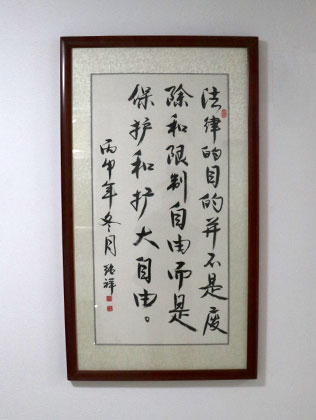 法律的目的并不是废
除和限制自由而是
保护和扩大自由。
丙申年冬月